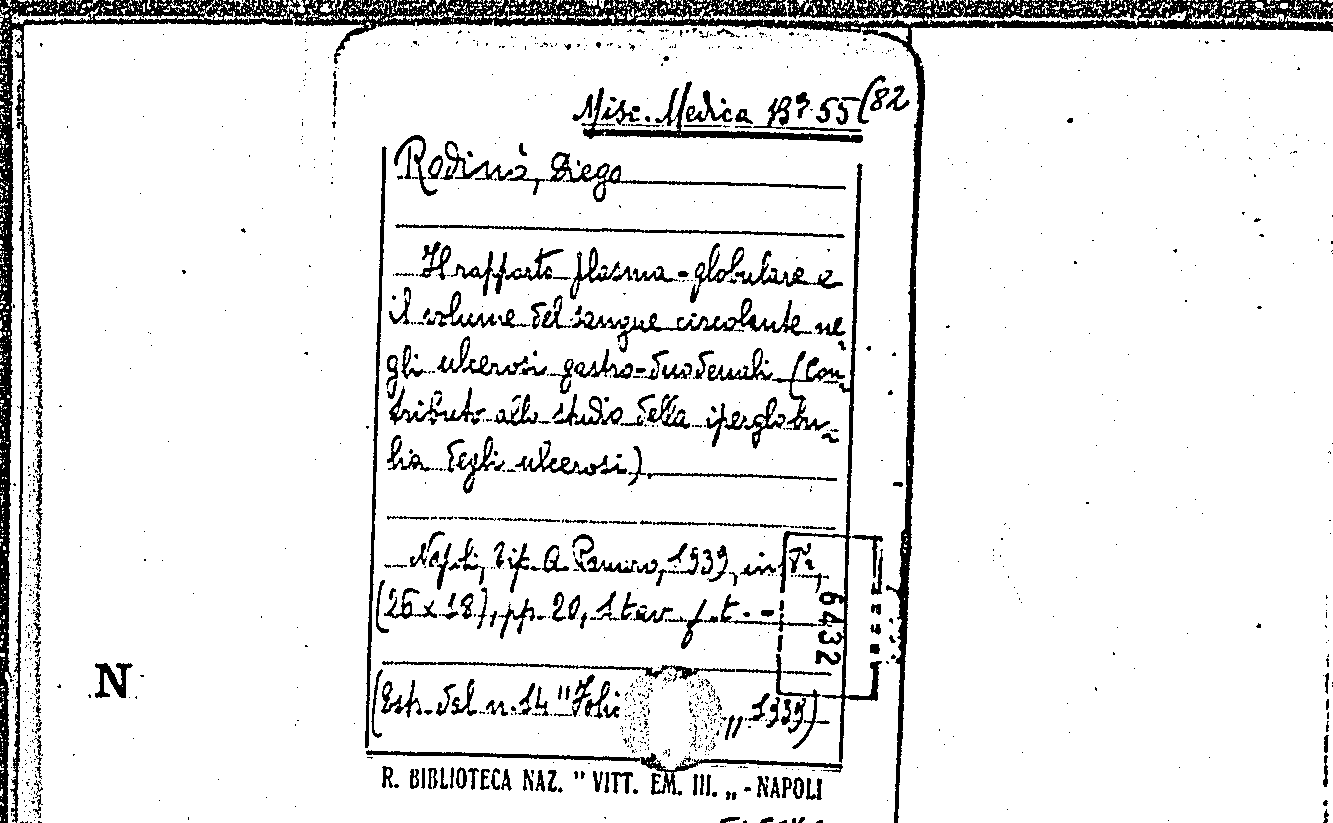 Misc. Medica B² 55(82
Rodinò, Diego
Il rapporto plasma-globulare e
il volume del sangue circolante ne-
gli ulcerosi gastro-duodenali (Con-
tributo allo studio della iperglobu-
lia degli ulcerosi).
Napoli, Tip. A. 1939, in
(26 x 18), pp. 20, 1 tav. f. t. -
6432
N
(Estr. del n. 14 "Foli „ 1939)
R. BIBLIOTECA NAZ. " VITT. EM. III. „ - NAPOLI